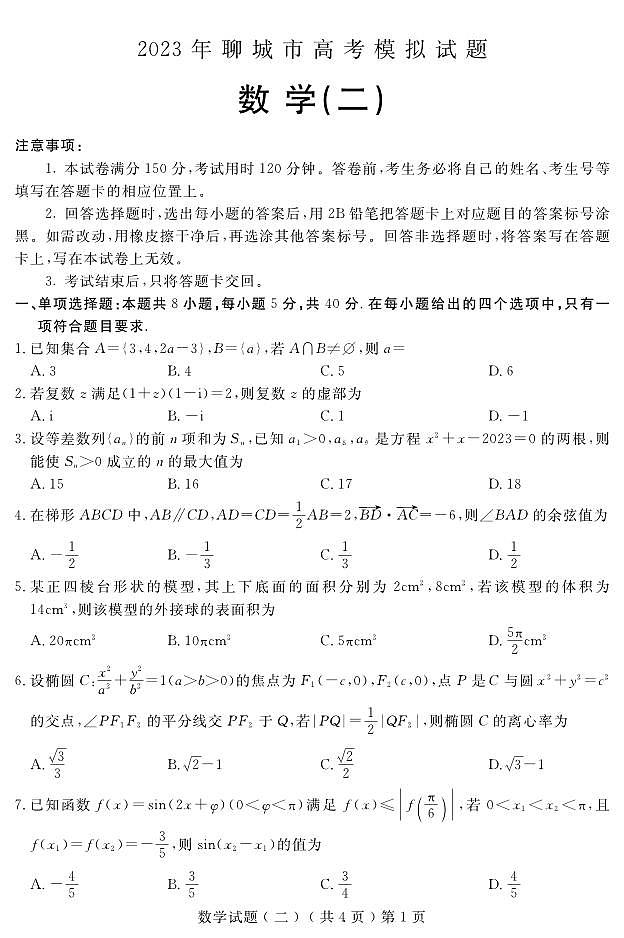 2023 年 聊 城 市 高 考 模 拟 试 题
数 学(二)
注意事项:
1. 本试卷满分 150 分,考试用时 120 分钟。答卷前,考生务必将自己的姓名、考生号等
填写在答题卡的相应位置上。
2. 回答选择题时,选出每小题的答案后,用 2B 铅笔把答题卡上对应题目的答案标号涂
黑。如需改动,用橡皮擦干净后,再选涂其他答案标号。回答非选择题时,将答案写在答题
卡上,写在本试卷上无效。
3. 考试结束后,只将答题卡交回。
一、单项选择题:本题共 8 小题,每小题 5 分,共 40 分.在每小题给出的四个选项中,只有一
项符合题目要求.
1. 已知集合 A={3,4,2a-3},B={a},若 A∩B≠∅,则 a=
A. 3 B. 4 C. 5 D. 6
2. 若复数 z 满足(1+z)(1-i)=2,则复数 z 的虚部为
A. i B. -i C. 1 D. -1
3. 设等差数列{aₙ}的前 n 项和为 Sₙ,已知 a₁>0,a₈,a₉ 是方程 x²+x-2023=0 的两根,则
能使 Sₙ>0 成立的 n 的最大值为
A. 15 B. 16 C. 17 D. 18
4. 在梯形 ABCD 中,AB∥CD,AD=CD=1/2AB=2,BD→·AC→=-6,则∠BAD 的余弦值为
A. -1/2 B. -1/3 C. 1/3 D. 1/2
5. 某正四棱台形状的模型,其上下底面的面积分别为 2cm²,8cm²,若该模型的体积为
14cm³,则该模型的外接球的表面积为
A. 20πcm² B. 10πcm² C. 5πcm² D. 5π/2cm²
6. 设椭圆 C:x²/a²+y²/b²=1(a>b>0)的焦点为 F₁(-c,0),F₂(c,0),点 P 是 C 与圆 x²+y²=c²
的交点,∠PF₁F₂ 的平分线交 PF₂ 于 Q,若|PQ|=1/2|QF₂|,则椭圆 C 的离心率为
A. √3/3 B. √2-1 C. √2/2 D. √3-1
7. 已知函数 f(x)=sin(2x+φ)(0<φ<π)满足 f(x)≤|f(π/6)|,若 0<x₁<x₂<π,且
f(x₁)=f(x₂)=-3/5,则 sin(x₂-x₁)的值为
A. -4/5 B. 3/5 C. 3/4 D. 4/5
数学试题(二)(共 4 页)第 1 页